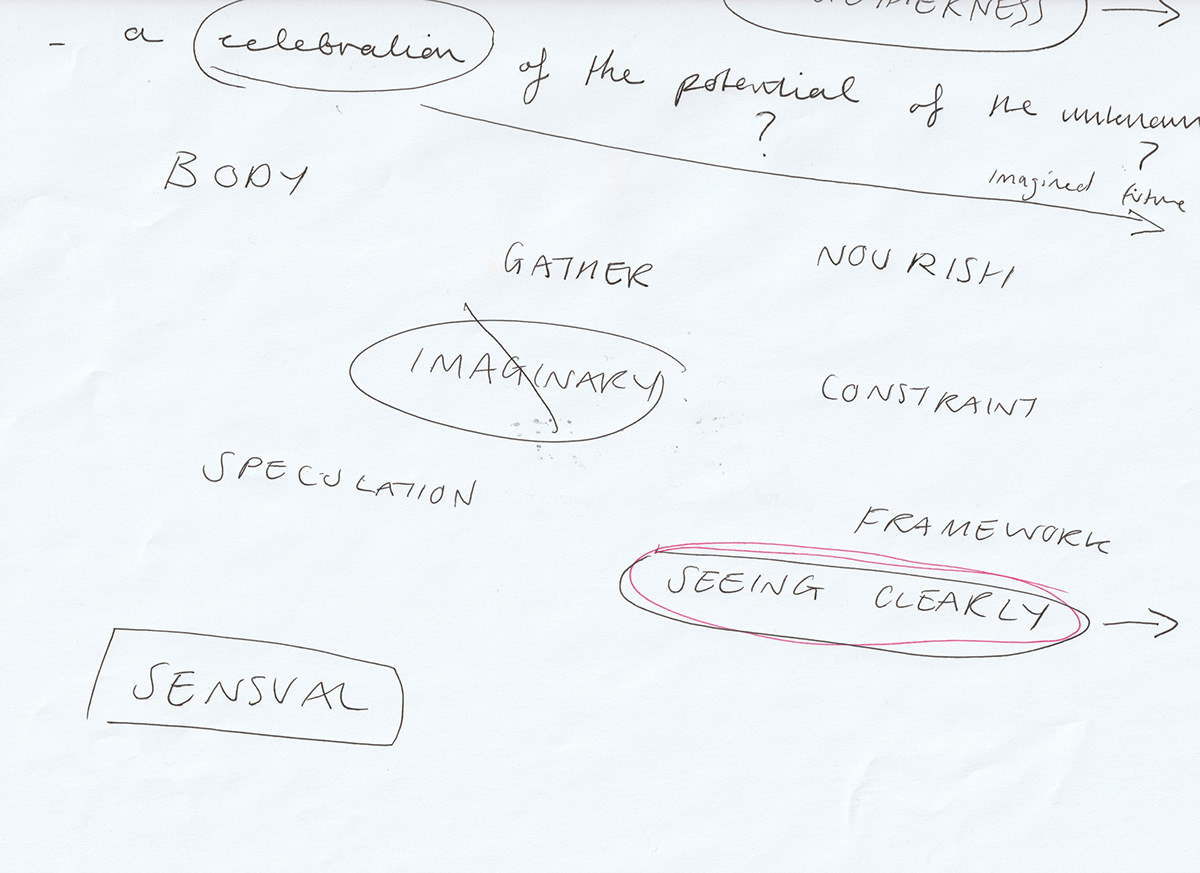 - a celebration of the potential of the unknown
? ?
imagined future
BODY
GATHER NOURISH
IMAGINARY
CONSTRAINT
SPECULATION
FRAMEWORK
SEEING CLEARLY
SENSUAL